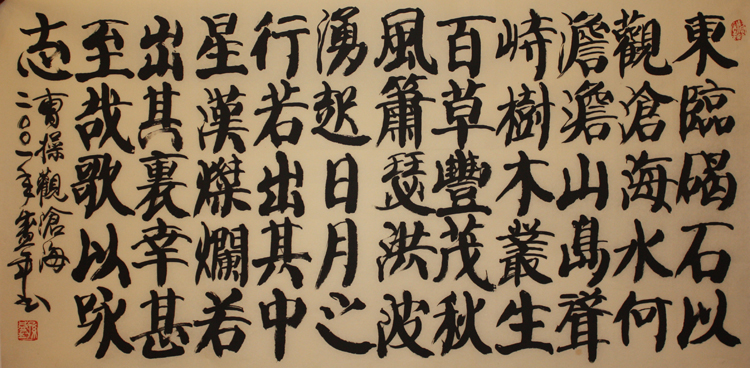 東臨碣石以
觀滄海水何
澹澹山島聲
峙樹木叢生
百草豐茂秋
風簫瑟洪波
湧起日月之
行若出其中
星漢燦爛若
出其裏幸甚
至哉歌以咏
志
曹操觀滄海
二〇〇一年